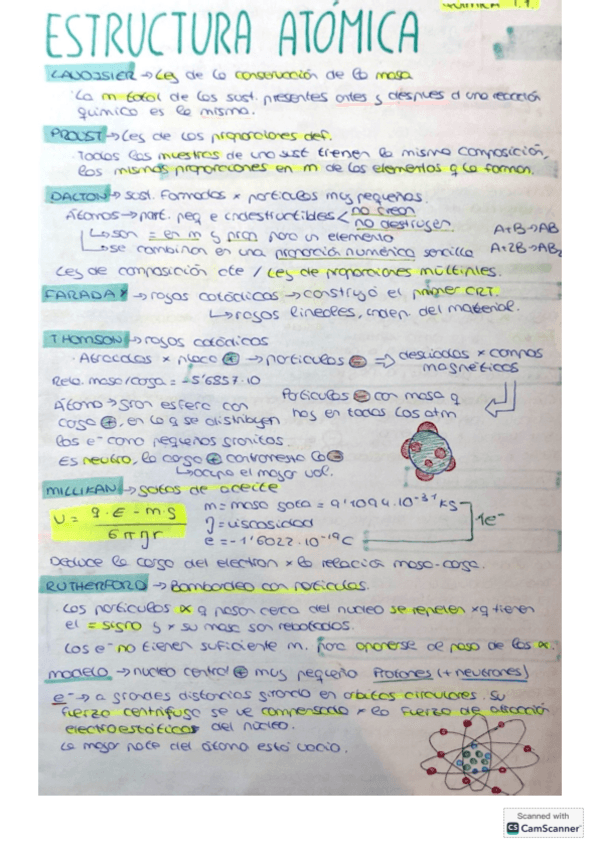 QUÍMICA T.1.
ESTRUCTURA ATÓMICA
LAVOISIER → Ley de la conservación de la masa
· La m total de las sust. presentes antes y despues d una reacción
química es la misma.
PROUST → Ley de las proporciones def.
· Todas las muestras de una sust tienen la misma composición,
las mismas proporciones en m de los elementos q la forman.
DALTON → sust. formadas x partículas muy pequeñas.
Átomos → part. peq e indestructibles < no crean
no destruyen
A+B→AB
son = en m y prop para un elemento
se combinan en una proporción numérica sencilla
A+2B→AB2
Ley de composición cte / Ley de proporciones múltiples.
FARADAY → rayos catódicos → construyó el primer CRT.
→ rayos lineales, indep. del material.
THOMSON → rayos catódicos
· Atraídas x placa ⊕ → partículas ⊖ ⇒ desviadas x campos
magnéticos
Rela. masa/carga = -5'6857·10
Partículas ⊖ con masa q
hay en todos los atm
Átomo → gran esfera con
carga ⊕, en la q se distribuyen
los e- como pequeños granitos.
Es neutro, la carga ⊕ contrarresta la ⊖
→ ocupa el mayor vol.
MILLIKAN → gotas de aceite
v = q·E - m·g / 6πηr
m = masa gota = 9'1094·10-31 kg
η = viscosidad
1e-
e = -1'6022·10-19 C
Deduce la carga del electron x la relación masa-carga.
RUTHERFORD → Bombardeo con partículas.
Las partículas α q pasan cerca del nucleo se repelen xq tienen
el = signo y x su masa son rebotadas.
Los e- no tienen suficiente m. para oponerse al paso de las α.
modelo → nucleo central ⊕ muy pequeño Protones (+ neutrones)
e- → a grandes distancias girando en orbitas circulares. Su
fuerza centrífuga se ve compensada x la fuerza de atracción
electroestática del núcleo.
La mayor parte del átomo está vacía.
Scanned with
CS CamScanner